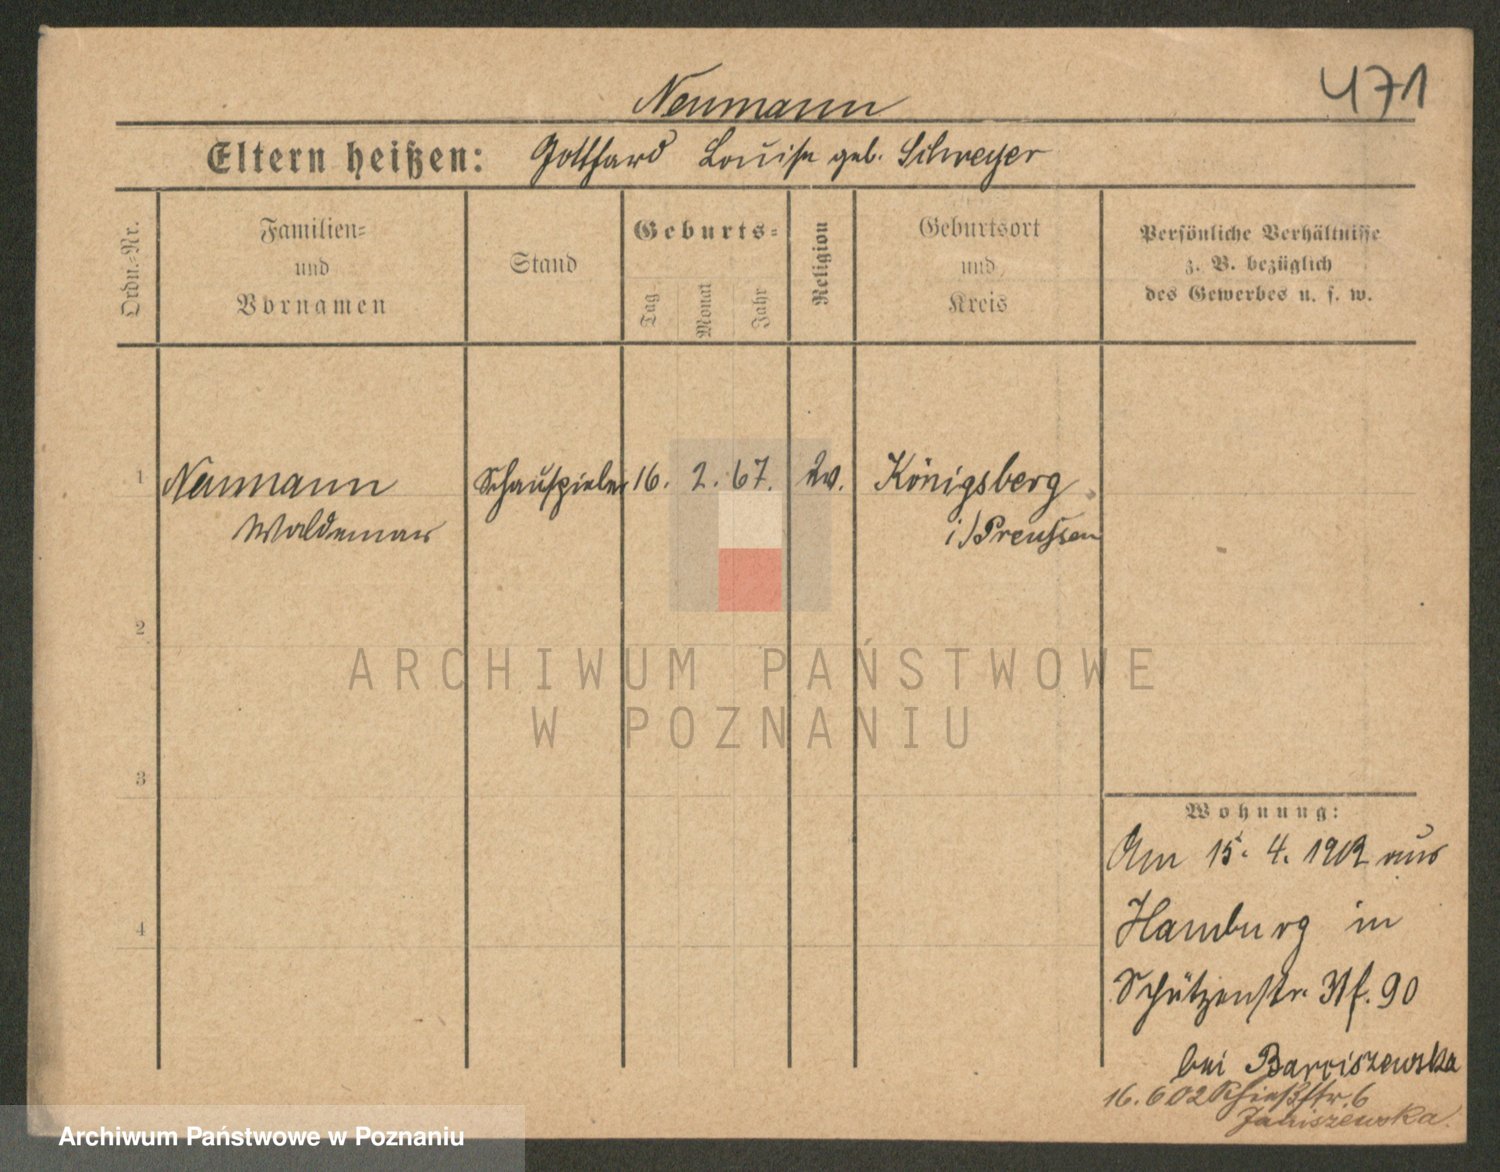 471
Neumann
Eltern heißen: Gotthard Louise geb. Schweyer
Ordn.-Nr.
Familien-
und
Vornamen
Stand
Geburts-
Tag
Monat
Jahr
Religion
Geburtsort
und
Kreis
Persönliche Verhältnisse
z. B. bezüglich
des Gewerbes u. s. w.
1 Neumann Schauspieler 16. 2. 67. Königsberg
Waldemar i/Preussen
2
ARCHIWUM PAŃSTWOWE
W POZNANIU
3
Wohnung:
Am 15. 4. 1902 aus
4
Hamburg in
Schützenstr. 31 f. 90
bei Barciszewska
16. 6 02 Schießstr. 6
Janiszewska.
Archiwum Państwowe w Poznaniu